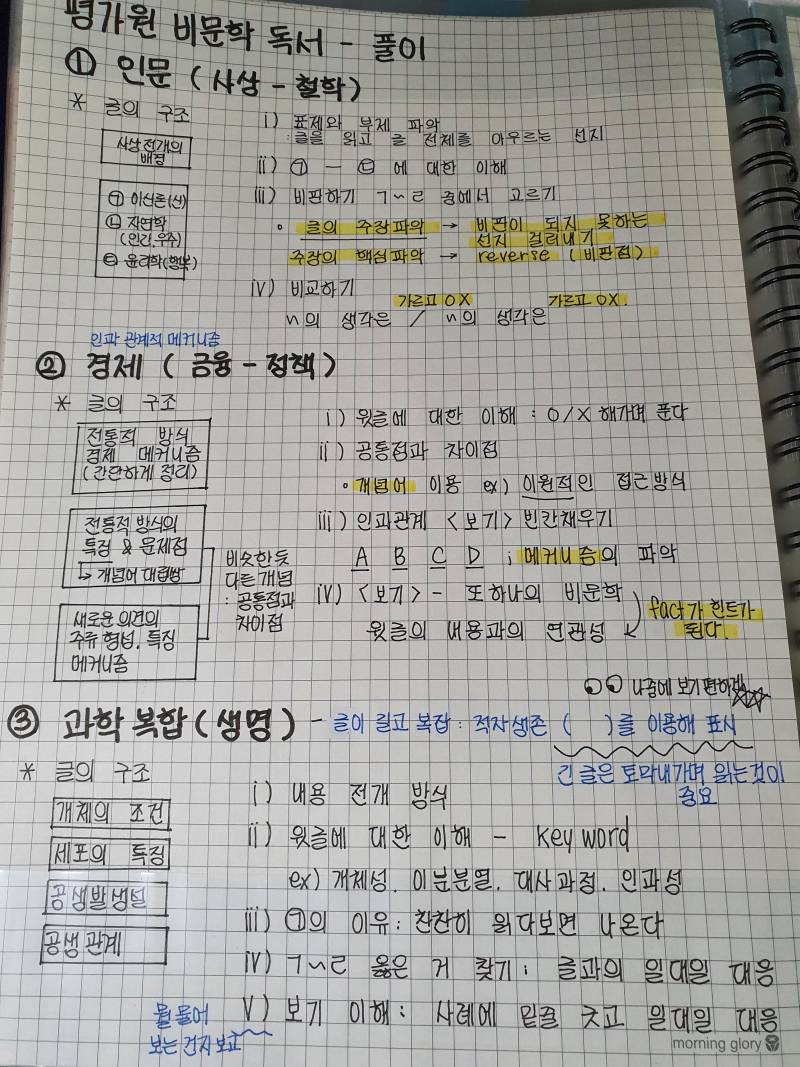 평가원 비문학 독서 - 풀이
① 인문 ( 사상 - 철학 )
* 글의 구조
사상 전개의
배경
㉠ 이신론(신)
㉡ 자연학
(인간.우주)
㉢ 윤리학(행복)
i) 표제와 부제 파악
: 글을 읽고 글 전체를 아우르는 선지
ii) ㉠ — ㉢ 에 대한 이해
iii) 비판하기 ㄱ~ㄹ 중에서 고르기
∘ 글의 주장파악 → 비판이 되지 못하는
선지 걸러내기
주장의 핵심파악 → reverse ( 비판점 )
iv) 비교하기
가르고 OX 가르고 OX.
n의 생각은 / n의 생각은
인과 관계적 메커니즘
② 경제 ( 금융 - 정책 )
* 글의 구조
전통적 방식
경제 메커니즘
(간단하게 정리)
전통적 방식의
특징 & 문제점
↳ 개념어 대립쌍
새로운 의견의
주류 형성. 특징
메커니즘
비슷한듯
다른개념
: 공통점과
차이점
i) 윗글에 대한 이해 : O/X 해가며 푼다
ii) 공통점과 차이점
∘ 개념어 이용 ex) 이원적인 접근방식
iii) 인과관계 <보기> 빈칸채우기
A B C D ; 메커니즘의 파악
iv) <보기> - 또 하나의 비문학
윗글의 내용과의 연관성
fact가 힌트가
된다.
나중에 보기 편하게
③ 과학 복합 ( 생명 ) - 글이 길고 복잡 : 적자생존 ( )를 이용해 표시
긴 글은 토막내가며 읽는것이
중요
* 글의 구조
개체의 조건
세포의 특징
공생발생설
공생 관계
i) 내용 전개 방식
ii) 윗글에 대한 이해 - key word
ex) 개체성. 이분분열. 대사과정. 인과성
iii) ㉠의 이유 : 찬찬히 읽다보면 나온다
iv) ㄱ~ㄹ 옳은 거 찾기 : 글과의 일대일 대응
v) 보기 이해 : 사례에 밑줄 긋고 일대일 대응
뭘 물어
보는 건지 보고
morning glory